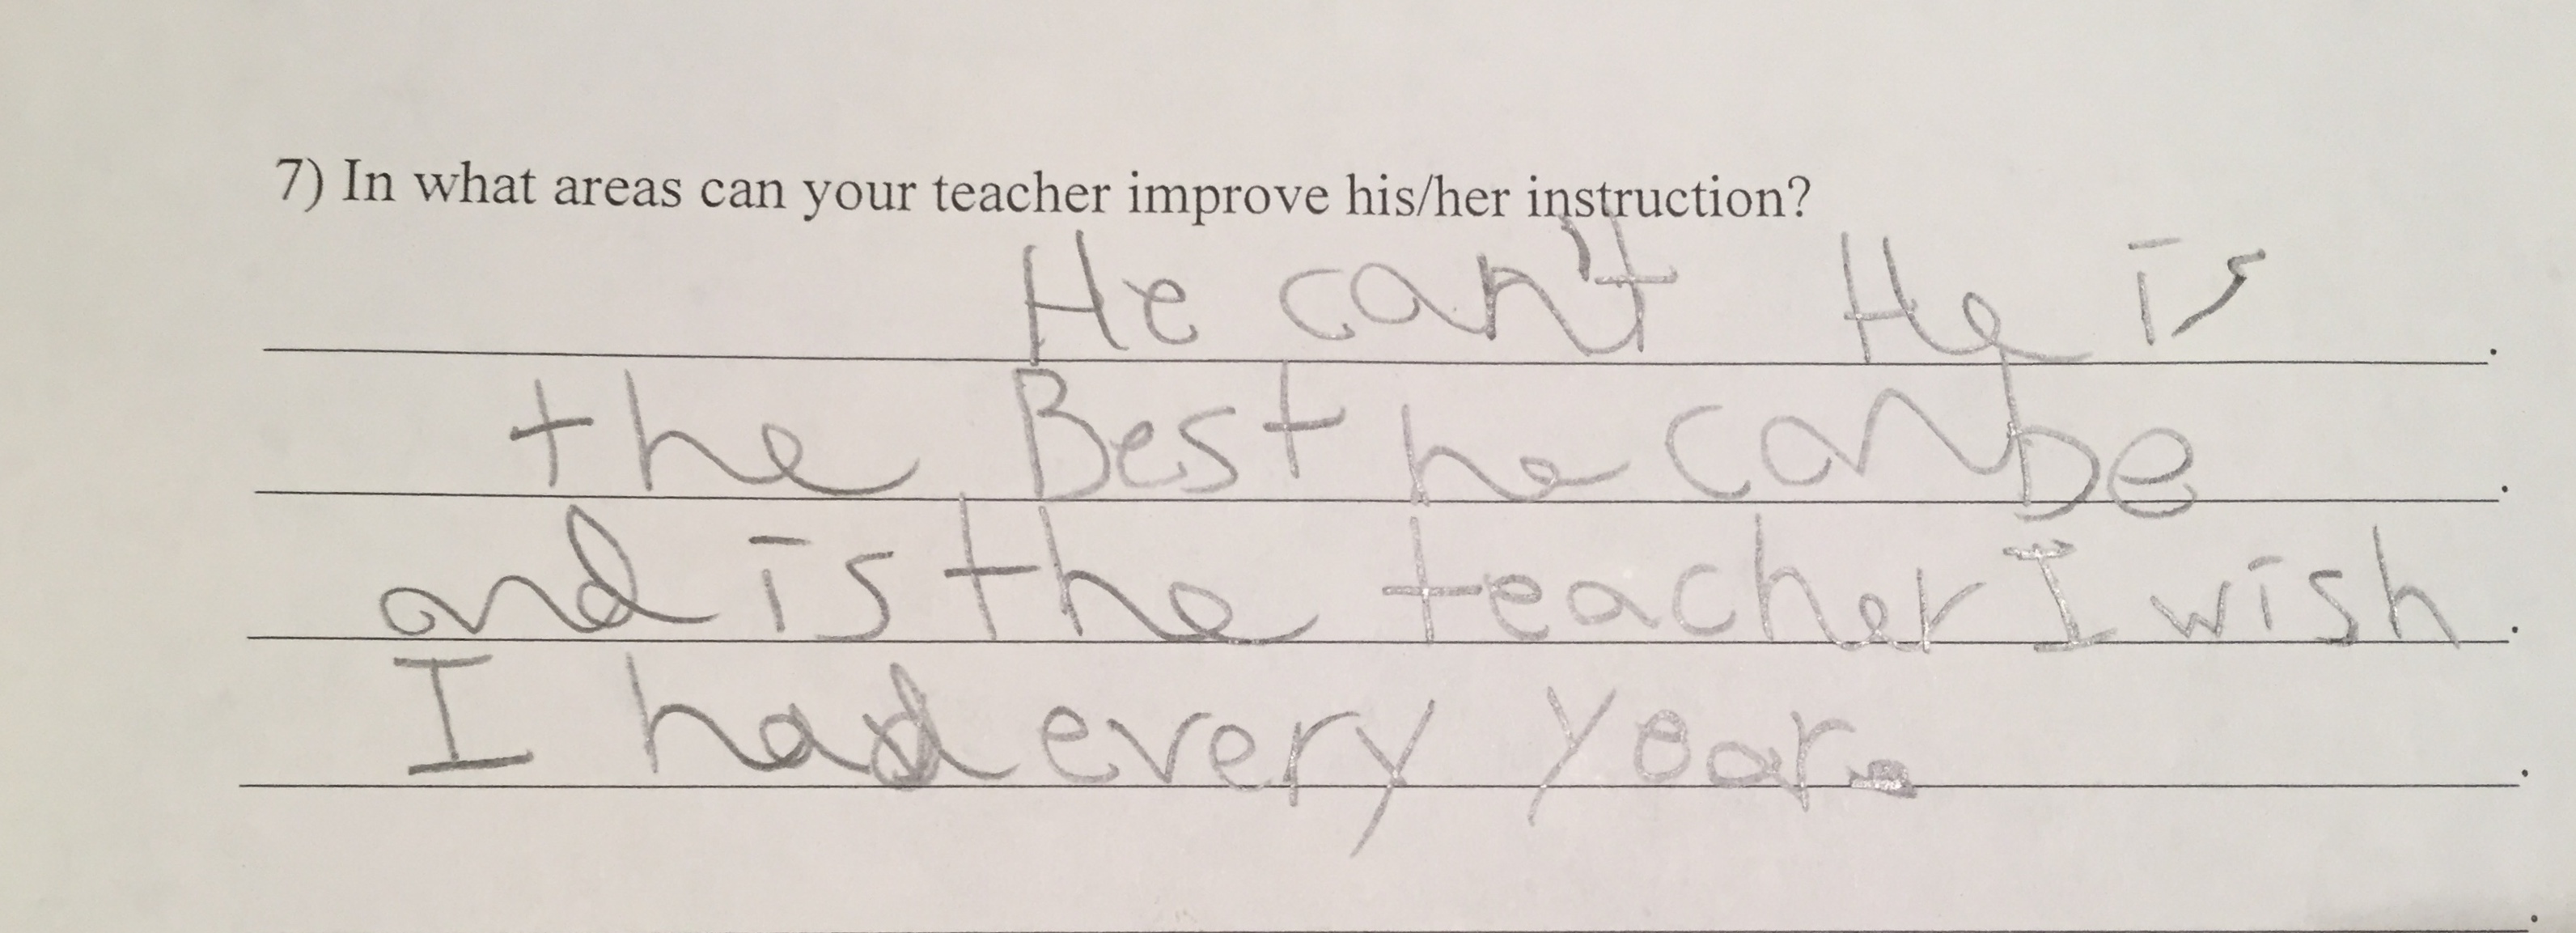 7) In what areas can your teacher improve his/her instruction?
He can't He is .
the Best he can be .
and is the teacher I wish .
I had every year. .
.